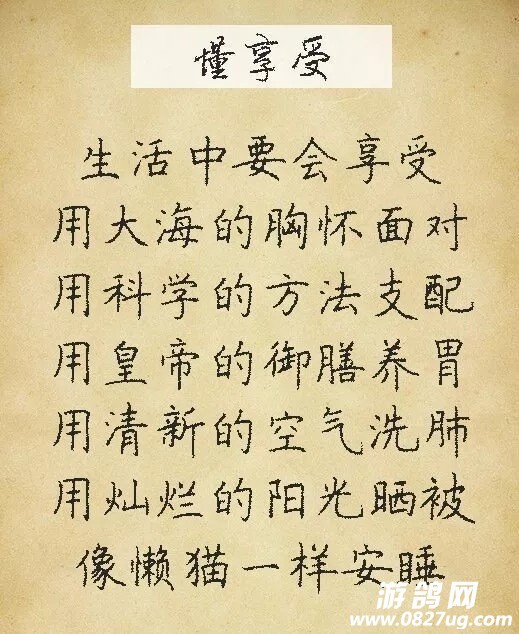 懂享受
生活中要会享受
用大海的胸怀面对
用科学的方法支配
用皇帝的御膳养胃
用清新的空气洗肺
用灿烂的阳光晒被
像懒猫一样安睡
游鸽网
www.0827ug.com